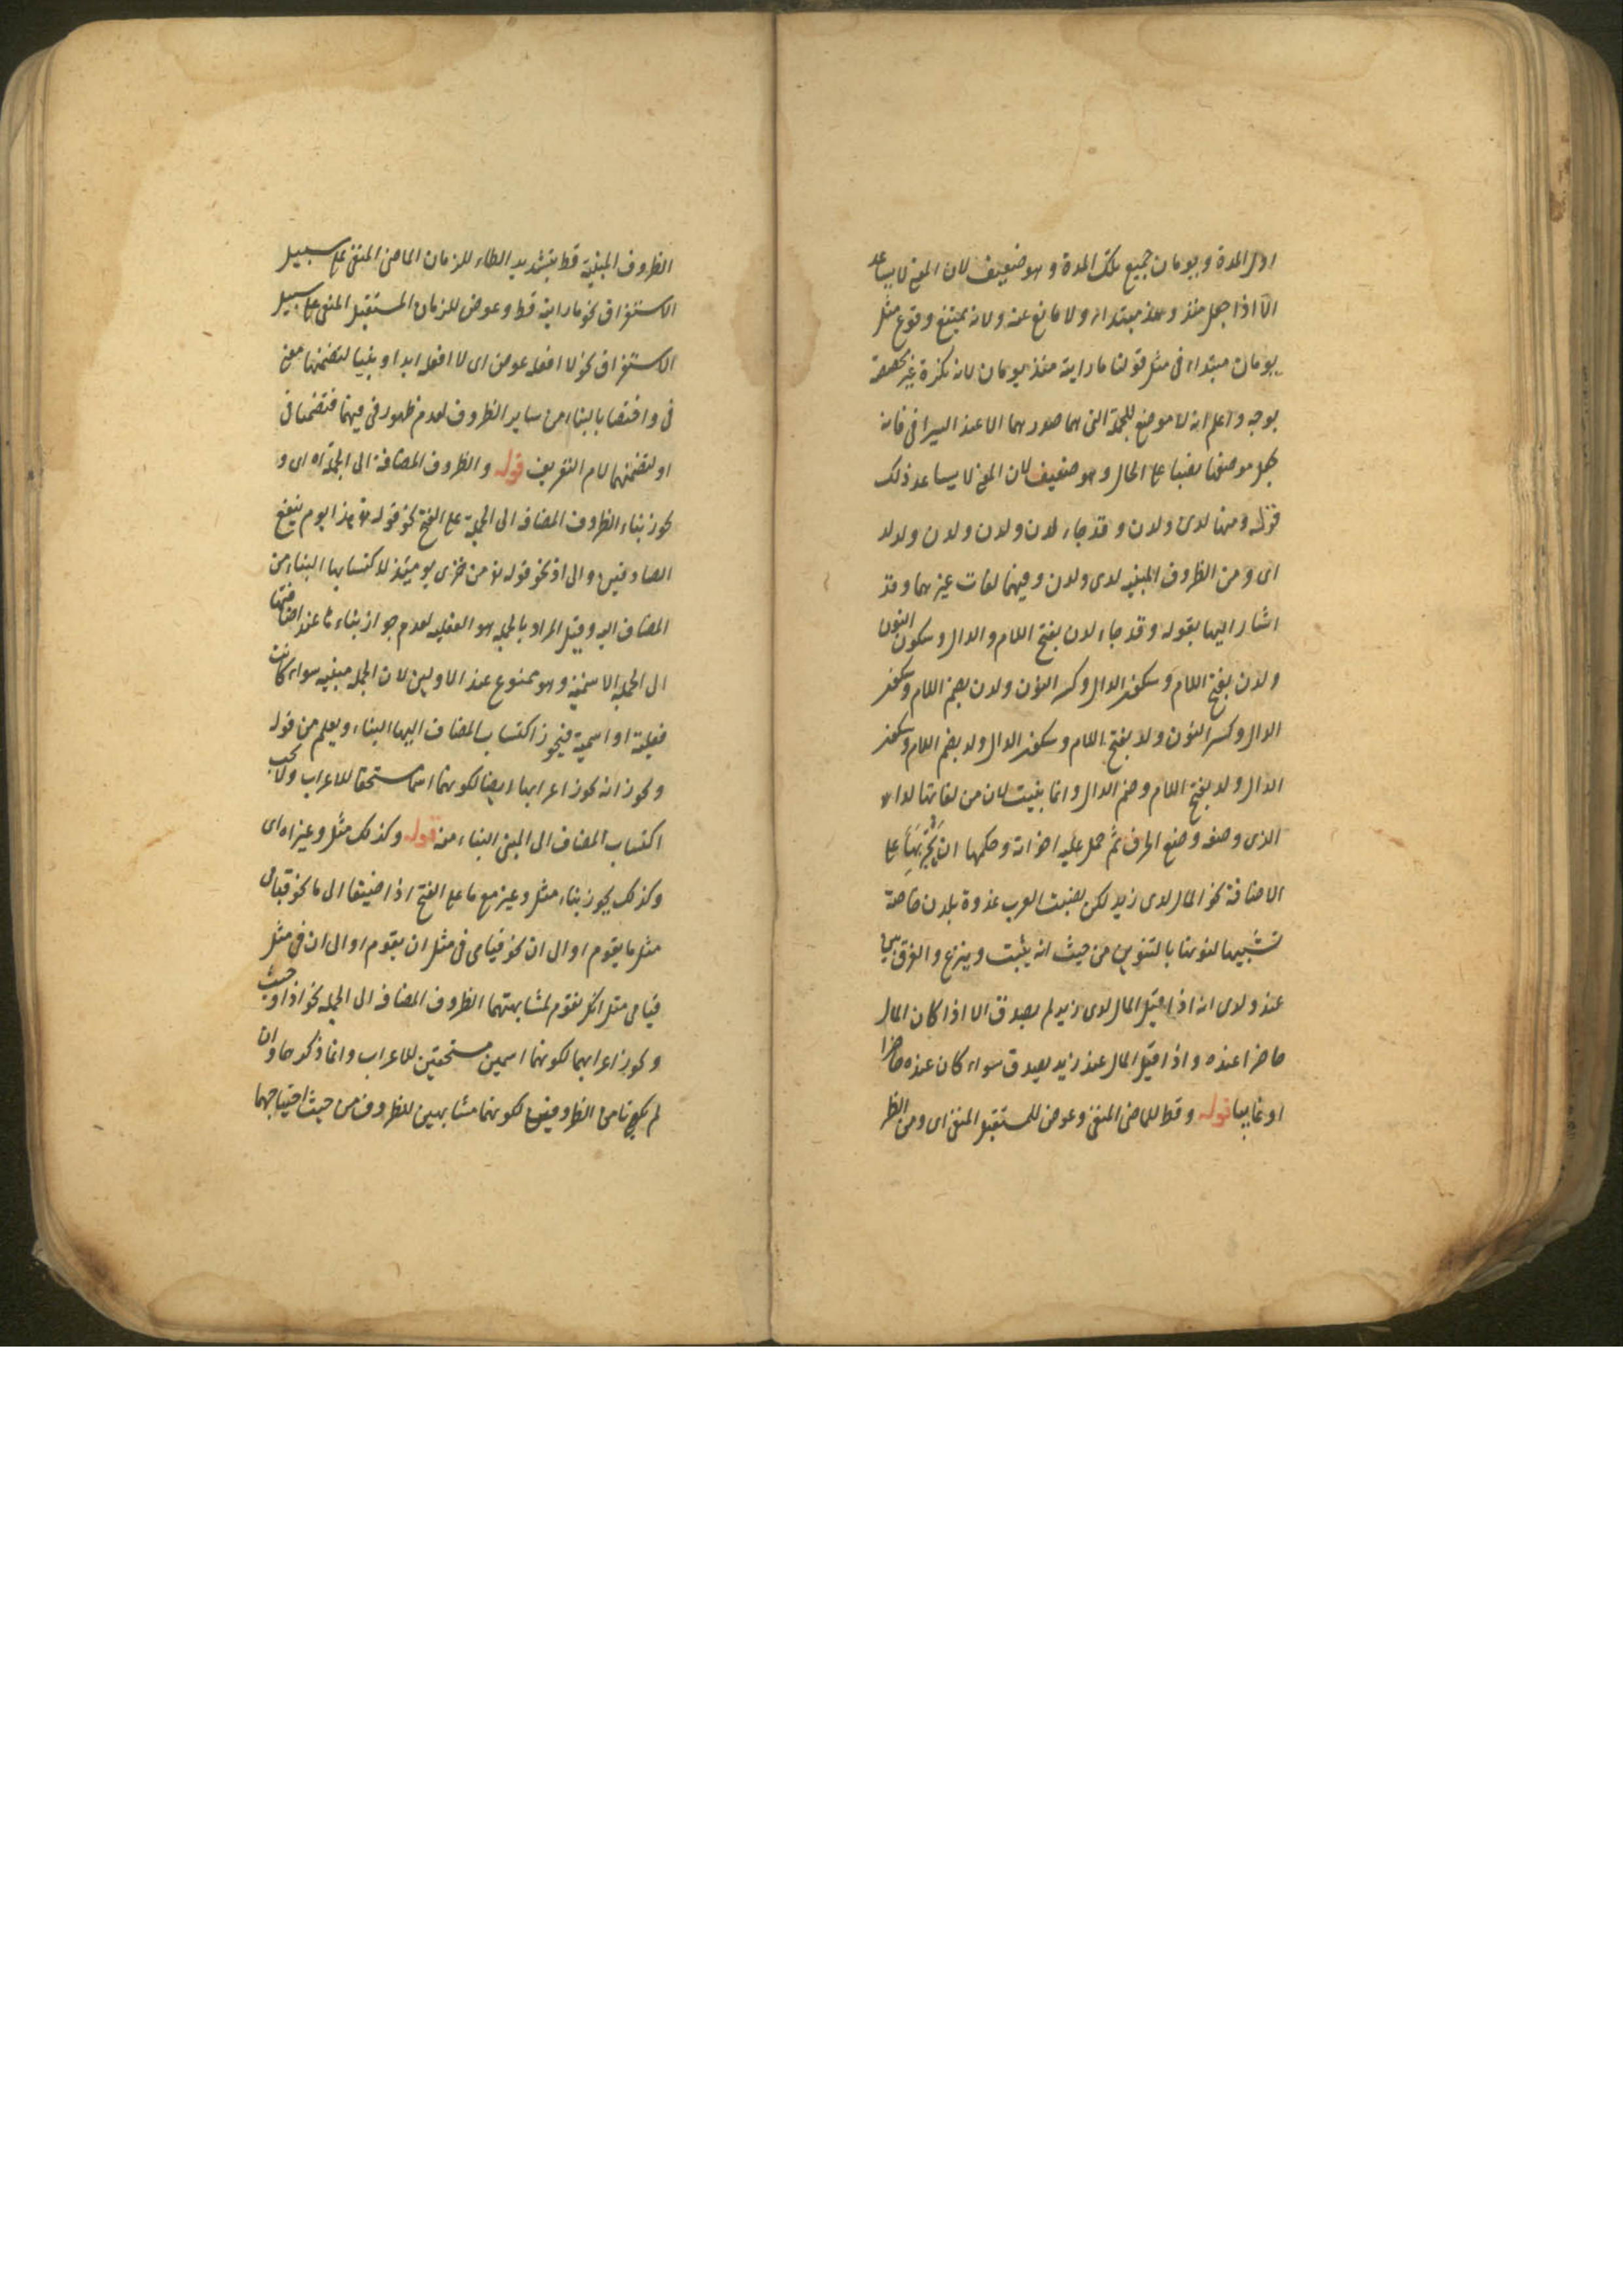 اول المدة ويومان جميع تلك المدة وهو ضعيف لان المعنى لا يساعد
الا اذا جعل منذ ومذ مبتداء ولا مانع عنه ولانه يمتنع وقوع مثل
يومان مبتداء فى مثل قولنا ما رايته منذ يومان لانه نكرة غير مخصصة
بوجه واعلم انه لا موضع للجملة التى هما صدرهما الا عند السيرافى فانه
يجعل موضعها نصبا على الحال وهو ضعيف لان المعنى لا يساعد ذلك
قوله ومنها لدى ولدن وقد جاء لدن ولدن ولدن ولد ولد
اى ومن الظروف المبنيه لدى ولدن وفيهما لغات غيرهما وقد
اشار اليها بقوله وقد جاء لدن بفتح اللام والدال وسكون النون
ولدن بفتح اللام وسكون الدال وكسر النون ولدن بضم اللام وسكون
الدال وكسر النون ولد بفتح اللام وسكون الدال ولد بضم اللام وسكون
الدال ولد بفتح اللام وضم الدال وانما بنيت لان من لغاتها لد
الذى وضعه وضع الحرف ثم حمل عليه اخواته وحكمها ان يجر بها على
الاضافة نحو المال لدى زيد لكن نصبت العرب غدوة بلدن خاصة
تشبيها لنونها بالتنوين من حيث انه يثبت وينزع والفرق بين
عند ولدى انه اذا قيل المال لدى زيد لم يصدق الا اذا كان المال
حاضرا عنده واذا قيل المال عند زيد يصدق سواء كان عنده حاضرا
او غايبا قوله وقط للماضى المنفى وعوض للمستقبل المنفى اى ومن الظر
الظروف المبنية قط بتشديد الطاء للزمان الماضى المنفى على سبيل
الاستغراق نحو ما رايته قط وعوض للزمان المستقبل المنفى على سبيل
الاستغراق نحو لا افعله عوض اى لا افعله ابدا وبنيا لتضمنهما معنى
فى واختصا بالبناء من ساير الظروف لعدم ظهور فى فيهما فتضمنا فى
او لتضمنهما لام التعريف قوله والظروف المضافة الى الجملة اه اى و
يجوز بناء الظروف المضافه الى الجملة على الفتح نحو قوله تع هذا يوم ينفع
الصادقين والى اذ نحو قوله تع من خزى يومئذ لاكتسابها البناء من
المضاف اليه وقيل المراد بالجمله هو الفعليه لعدم جواز بناءها عند اضافتها
الى الجملة الاسميه وهو ممنوع عند الاولين لان الجمله مبنيه سواء كانت
فعلية او اسمية فيجوز اكتساب المضاف اليها البناء ويعلم من قوله
ويجوز انه يجوز اعرابها ايضا لكونهما اسما مستحقا للاعراب ولا يجب
اكتساب المضاف الى المبنى البناء منه قوله وكذلك مثل وغير اه اى
وكذلك يجوز بناء مثل وغير مع ما على الفتح اذا اضيفا الى ما نحو قيامى
مثل ما يقوم او الى ان نحو قيامى فى مثل ان يقوم او الى ان فى مثل
قيامى مثل انك تقوم لمشابهتهما الظروف المضافه الى الجمله نحو اذ او حيث
ويجوز اعرابهما لكونهما اسمين مستحقين للاعراب وانما ذكرهما وان
لم يكونا من الظروف لكونهما مشابهين للظروف من حيث احتياجهما